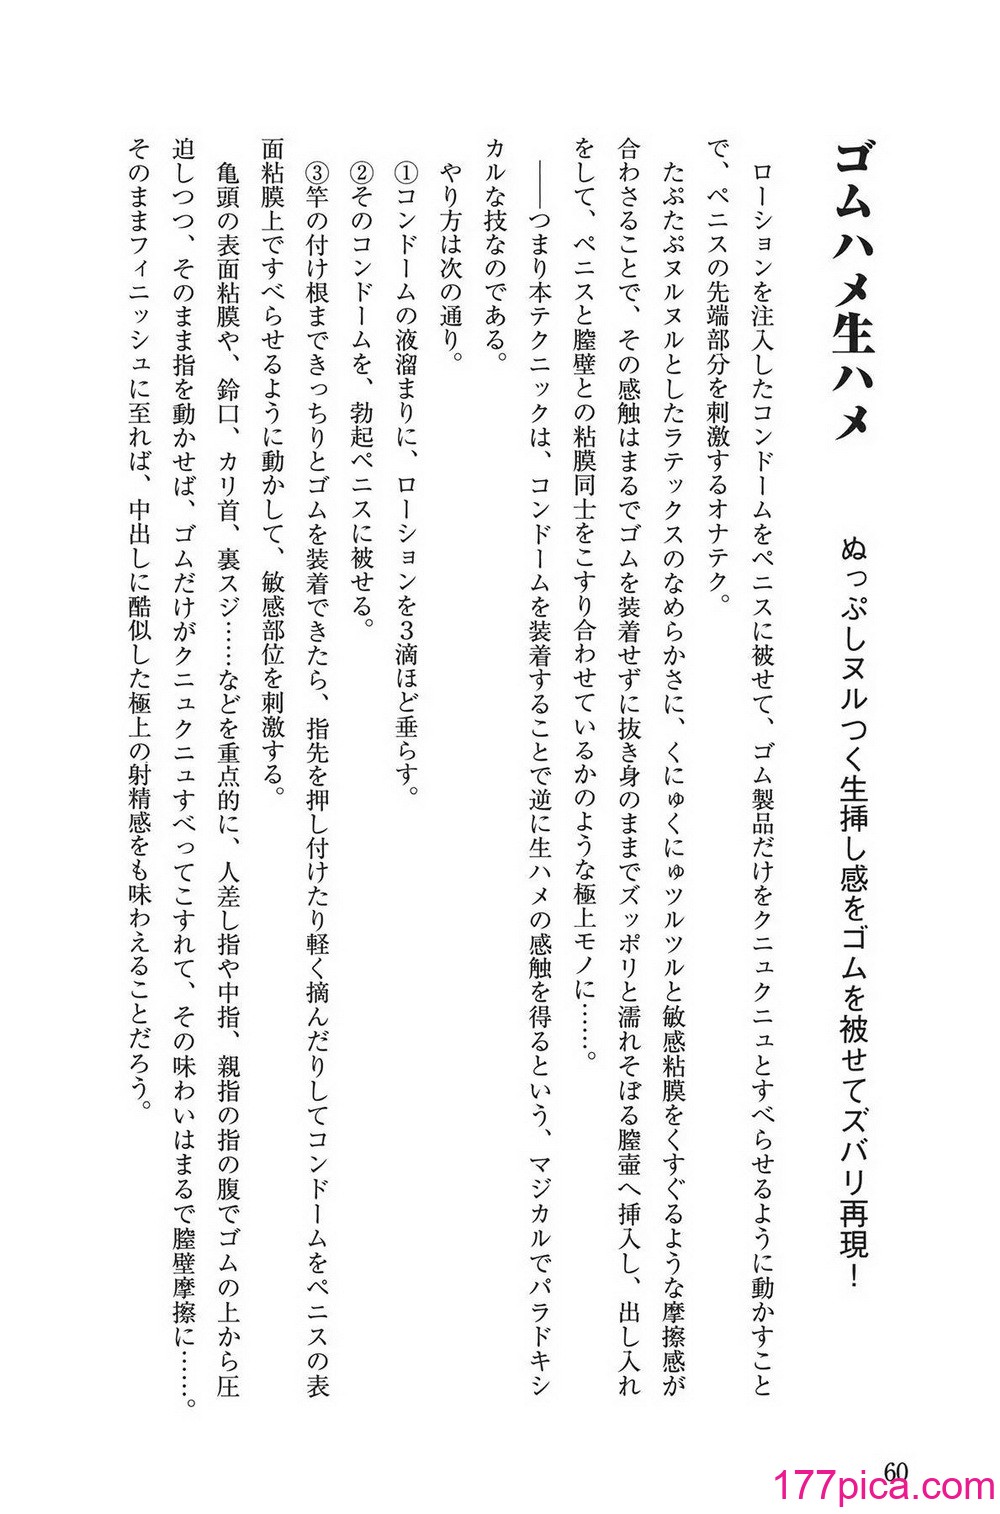 ゴムハメ生ハメ　ぬっぷしヌルつく生挿し感をゴムを被せてズバリ再現！
ローションを注入したコンドームをペニスに被せて、ゴム製品だけをクニュクニュとすべらせるように動かすこと
で、ペニスの先端部分を刺激するオナテク。
たぷたぷヌルヌルとしたラテックスのなめらかさに、くにゅくにゅツルツルと敏感粘膜をくすぐるような摩擦感が
合わさることで、その感触はまるでゴムを装着せずに抜き身のままでズッポリと濡れそぼる膣壷へ挿入し、出し入れ
をして、ペニスと膣壁との粘膜同士をこすり合わせているかのような極上モノに……。
――つまり本テクニックは、コンドームを装着することで逆に生ハメの感触を得るという、マジカルでパラドキシ
カルな技なのである。
やり方は次の通り。
①コンドームの液溜まりに、ローションを3滴ほど垂らす。
②そのコンドームを、勃起ペニスに被せる。
③竿の付け根まできっちりとゴムを装着できたら、指先を押し付けたり軽く摘んだりしてコンドームをペニスの表
面粘膜上ですべらせるように動かして、敏感部位を刺激する。
亀頭の表面粘膜や、鈴口、カリ首、裏スジ……などを重点的に、人差し指や中指、親指の指の腹でゴムの上から圧
迫しつつ、そのまま指を動かせば、ゴムだけがクニュクニュすべってこすれて、その味わいはまるで膣壁摩擦に……。
そのままフィニッシュに至れば、中出しに酷似した極上の射精感をも味わえることだろう。
60
177pica.com